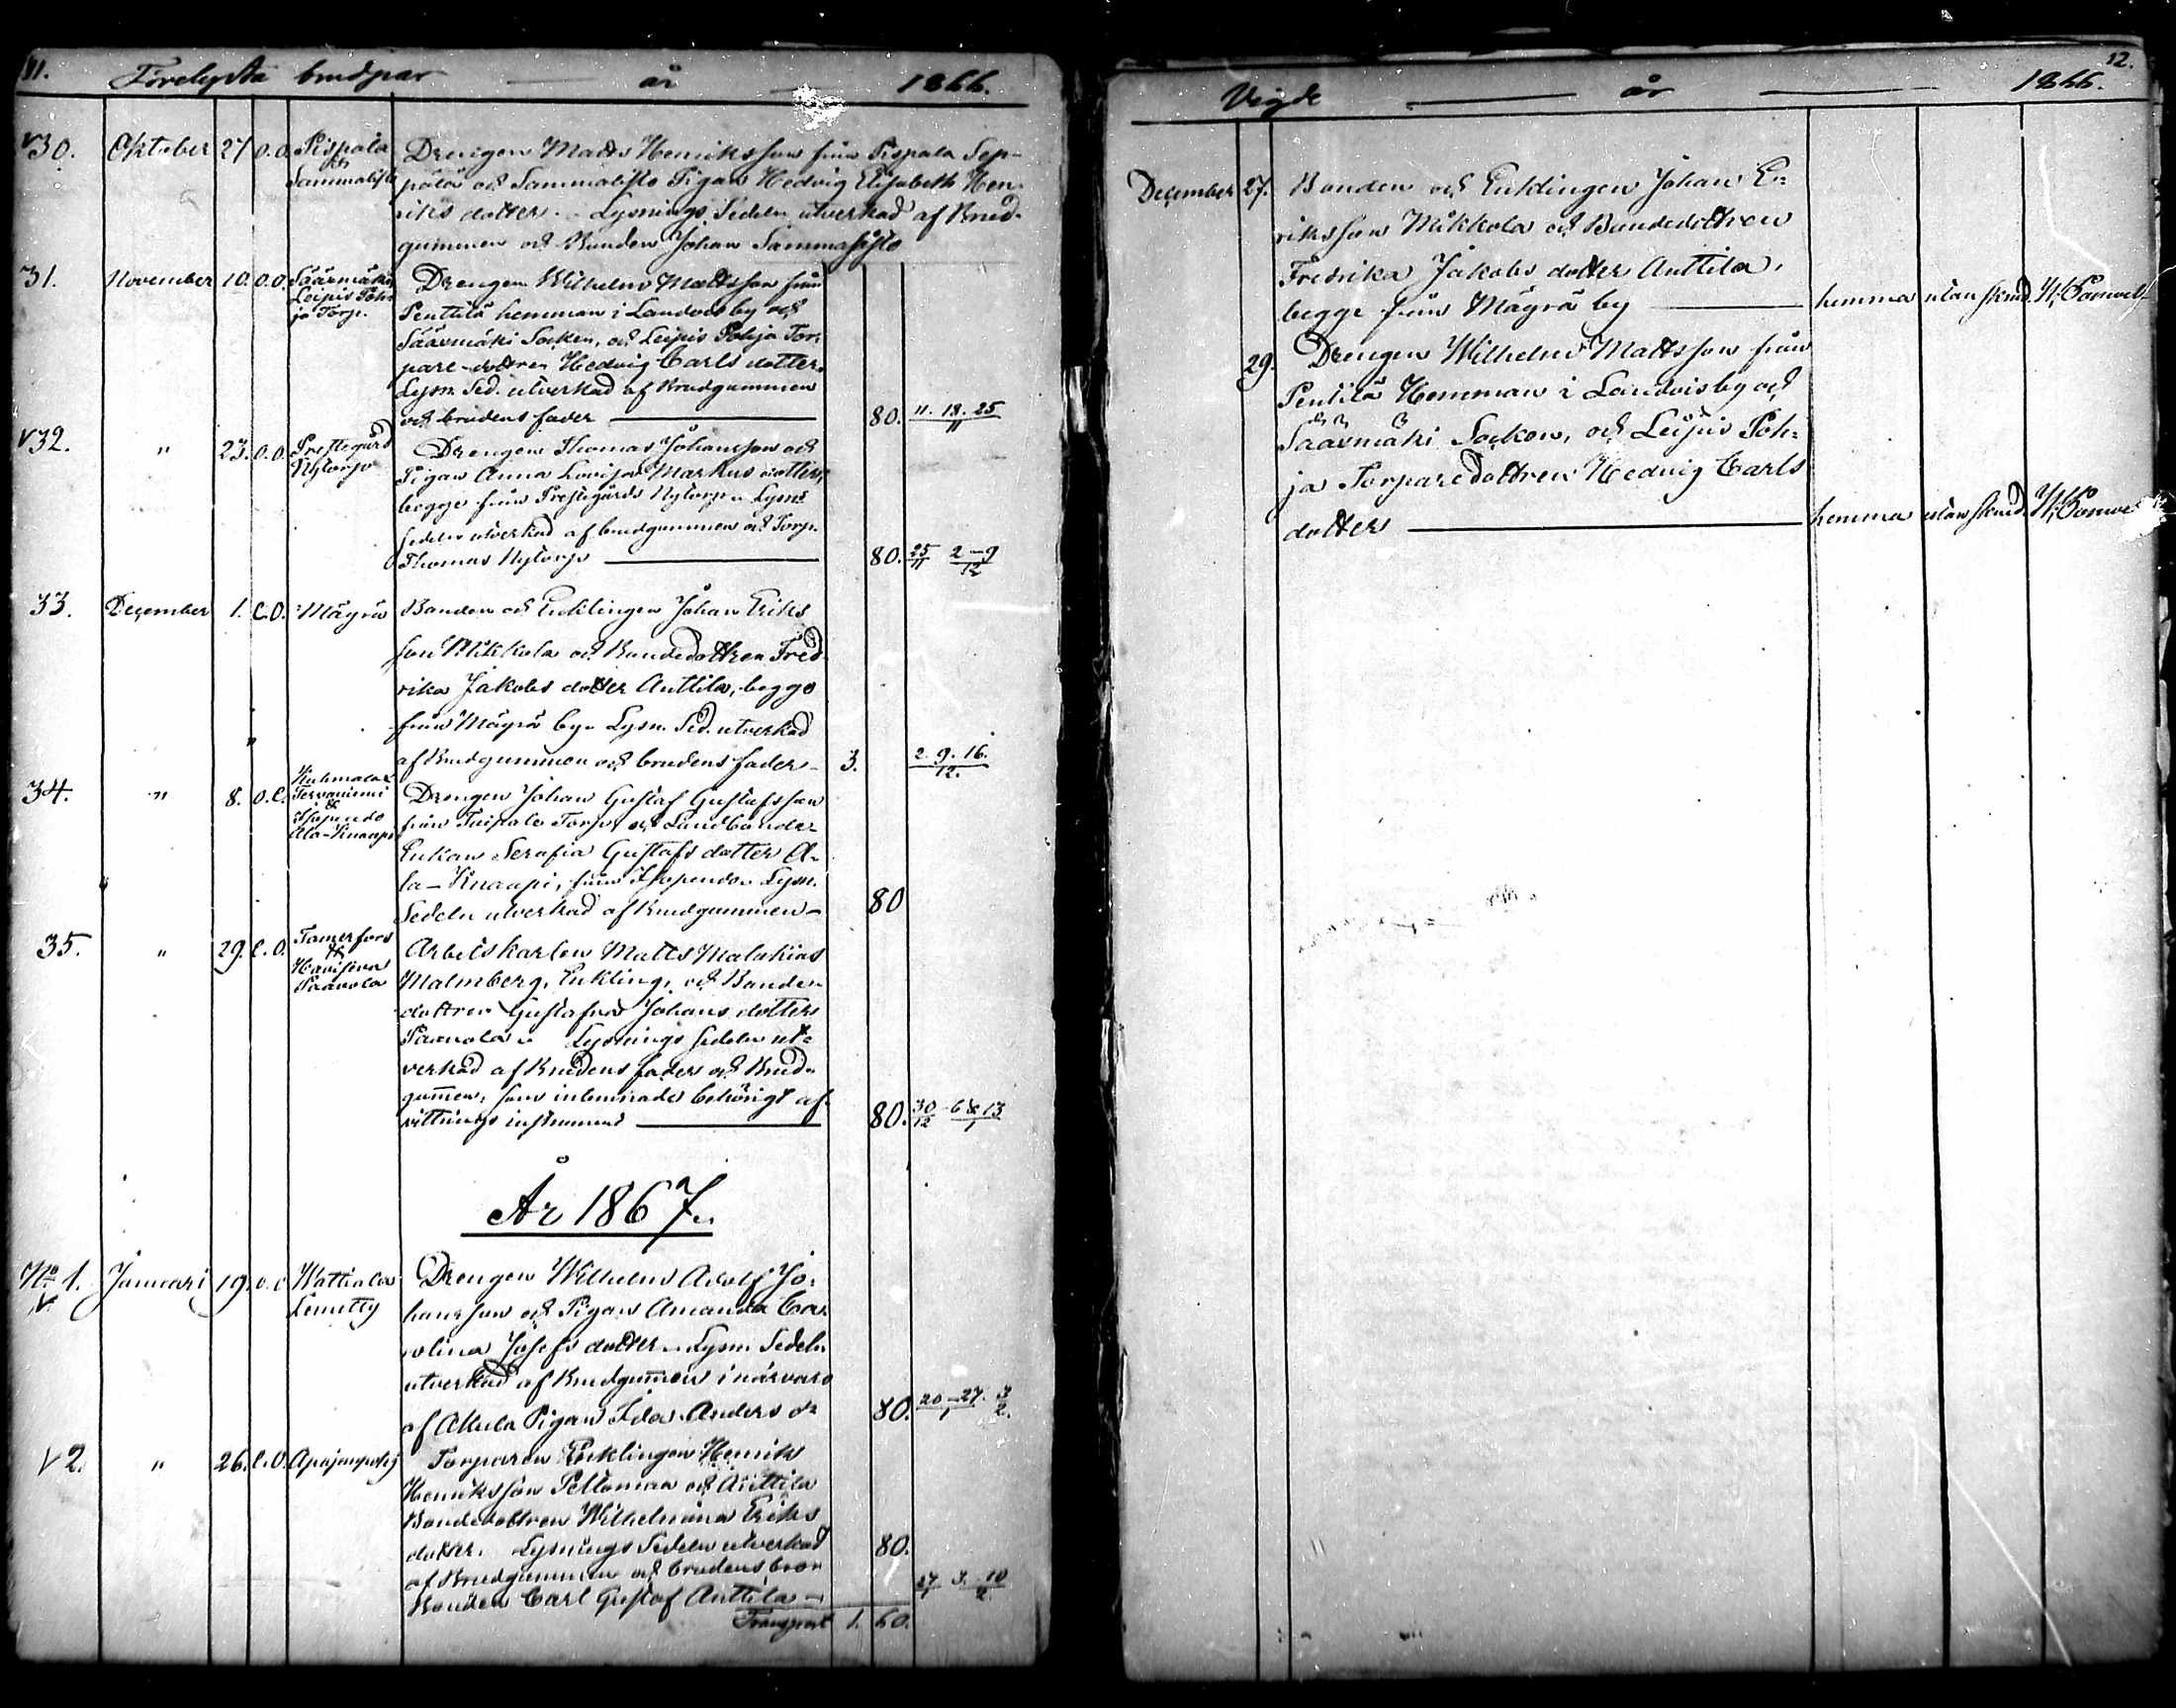 11. Förelysta brudpar år 1866.
30. Oktober 27 O.O. Pispala & Sammalisto
Drengen Matts Henriksson från Pispala Sep-
pälä och Sammalisto Pigan Hedvig Elisabeth Hen-
riks dotter. Lysnings Sedeln utverkad af Brud-
gummen och Bonden Johan Sammalisto
31. November 10. O.O. Sääxmäki Leipis Poh-
ja Torp.
Drengen Wilhelm Mattsson från
Penttilä hemman i Landvis by och
Sääxmäki Socken, och Leipis Pohja Tor-
pare-dottren Hedvig Carls dotter.
Lysn. Sed. utverkad af Brudgummen
och brudens fader 80. 11. 18. 25/11
32. " 23. O.O. Prestegårds Nytorp
Drengen Thomas Johansson och
Pigan Anna Lovisa Markus dotter,
begge från Prestegårds Nytorp. Lysn.
sedeln utverkad af brudgummen och Torp.
Thomas Nytorp 80. 25/11 2-9/12
33. December 1. E.O. Mägrä
Bonden och Enklingen Johan Eriks
son Mikkola och Bondedottren Fred-
rika Jakobs dotter Anttila, begge
från Mägrä by. Lysn. Sed. utverkad
af Brudgummen och brudens fader 3. 2. 9. 16./12.
34. " 8. O.E. Kuhmalax
Tervaniemi & Ala-Knaapi
Drengen Johan Gustaf Gustafsson
från Taipale Torp, och Landbonde-
Enkan Serafia Gustafs dotter A-
la-Knaapi, från Lysn.
Sedeln utverkad af Brudgummen 80
35. " 29. E.O. Tamerfors & Haviseva Paavola
Arbetskarlen Matts Malakias
Malmberg, Enkling, och Bonde-
dottren Gustafva Johans dotter
Paavola. Lysnings sedeln ut-
verkad af Brudens fader och Brud-
gumen, som inlemnade behörigt af-
vittrings instrument 80. 30/12 - 6 & 13/1
År 1867.
No 1. Januari 19. O.O. Wattiala Lemetty
Drengen Wilhelm Adolf Jo-
hansson och Pigan Amanda Ca-
rolina Josefs dotter. Lysn. Sedeln
utverkad af Brudgumen i närvaro
af Pigan Ida Anders dr 80. 20-27./1 3/2.
2. " 26. E.O. Apajanpohj
Torparen Enklingen Henrik
Henriksson Peltomaa och Anttila
Bondedottren Wilhelmina Eriks
dotter. Lysnings Sedeln utverkad 80.
af Brudgummen och brudens bror
Bonden Carl Gustaf Anttila 27/1 3. 10/2
Transport 1. 60.
12.
Vigde år 1866.
December 27. Bonden och Enklingen Johan E-
riksson Mikkola och Bondedottren
Fredrika Jakobs dotter Anttila,
begge från Mägrä by hemma utan skrud.
29. Drengen Wilhelm Mattsson från
Penttilä Hemman i Landvis by och
Sääxmäki Socken, och Leipis Poh-
ja Torparedottren Hedvig Carls
dotter hemma utan skrud.